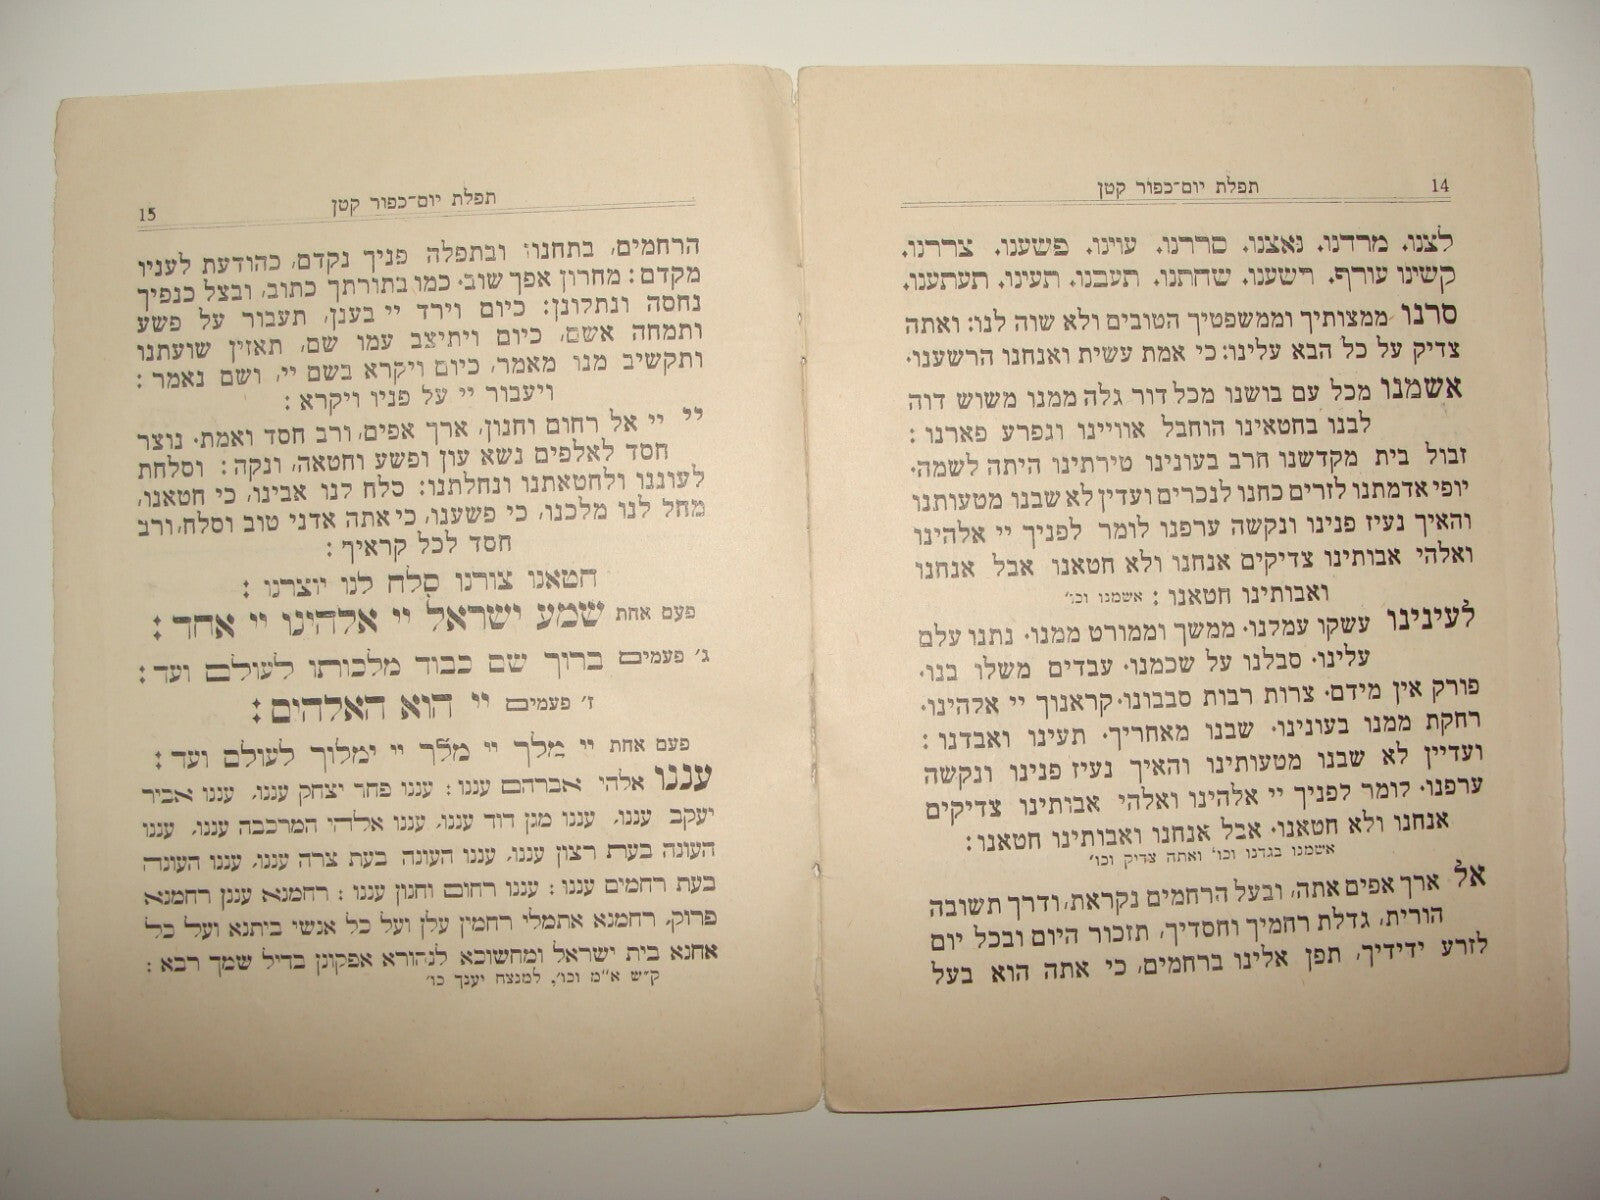 14 תפלת יום־כפור קטן
לצנו. מרדנו. נאצנו. סררנו. עוינו. פשענו. צררנו.
קשינו עורף. רשענו. שחתנו. תעבנו. תעינו. תעתענו.
סרנו ממצותיך וממשפטיך הטובים ולא שוה לנו: ואתה
צדיק על כל הבא עלינו: כי אמת עשית ואנחנו הרשענו.
אשמנו מכל עם בושנו מכל דור גלה ממנו משוש דוה
לבנו בחטאינו הוחבל אוויינו וגפרע פארנו :
זבול בית מקדשנו חרב בעונינו טירתינו היתה לשמה.
יופי אדמתנו לזרים כחנו לנכרים ועדין לא שבנו מטעותנו
והאיך נעיז פנינו ונקשה ערפנו לומר לפניך יי אלהינו
ואלהי אבותינו צדיקים אנחנו ולא חטאנו אבל אנחנו
ואבותינו חטאנו : אשמנו וכו׳
לעינינו עשקו עמלנו. ממשך וממורט ממנו. נתנו עלם
עלינו. סבלנו על שכמנו. עבדים משלו בנו.
פורק אין מידם. צרות רבות סבבונו. קראנוך יי אלהינו.
רחקת ממנו בעונינו. שבנו מאחריך. תעינו ואבדנו :
ועדיין לא שבנו מטעותינו והאיך נעיז פנינו ונקשה
ערפנו. לומר לפניך יי אלהינו ואלהי אבותינו צדיקים
אנחנו ולא חטאנו. אבל אנחנו ואבותינו חטאנו :
אשמנו בגדנו וכו׳ ואתה צדיק וכו׳
אל ארך אפים אתה, ובעל הרחמים נקראת, ודרך תשובה
הורית, גדלת רחמיך וחסדיך, תזכור היום ובכל יום
לזרע ידידיך, תפן אלינו ברחמים, כי אתה הוא בעל
תפלת יום־כפור קטן 15
הרחמים, בתחנון ובתפלה פניך נקדם, כהודעת לעניו
מקדם : מחרון אפך שוב. כמו בתורתך כתוב, ובצל כנפיך
נחסה ונתלונן : כיום וירד יי בענן, תעבור על פשע
ותמחה אשם, כיום ויתיצב עמו שם, תאזין שועתנו
ותקשיב מנו מאמר, כיום ויקרא בשם יי, ושם נאמר :
ויעבור יי על פניו ויקרא :
יי יי אל רחום וחנון, ארך אפים, ורב חסד ואמת. נוצר
חסד לאלפים נשא עון ופשע וחטאה, ונקה : וסלחת
לעוננו ולחטאתנו ונחלתנו : סלח לנו אבינו, כי חטאנו,
מחל לנו מלכנו, כי פשענו, כי אתה אדני טוב וסלח, ורב
חסד לכל קראיך :
חטאנו צורנו סלח לנו יוצרנו :
פעם אחת שמע ישראל יי אלהינו יי אחד :
ג׳ פעמים ברוך שם כבוד מלכותו לעולם ועד :
ז׳ פעמים יי הוא האלהים :
פעם אחת יי מלך יי מלך יי ימלוך לעולם ועד :
עננו אלהי אברהם עננו : עננו פחד יצחק עננו, עננו אביר
יעקב עננו, עננו מגן דוד עננו, עננו אלהי המרכבה עננו, עננו
העונה בעת רצון עננו, עננו העונה בעת צרה עננו, עננו העונה
בעת רחמים עננו : עננו רחום וחנון עננו : רחמנא עננן רחמנא
פרוק, רחמנא אתמלי רחמין עלן ועל כל אנשי ביתנא ועל כל
אחנא בית ישראל ומחשוכא לנהורא אפקונן בדיל שמך רבא :
ק״ש א״מ וכו׳, למנצח יענך כו׳